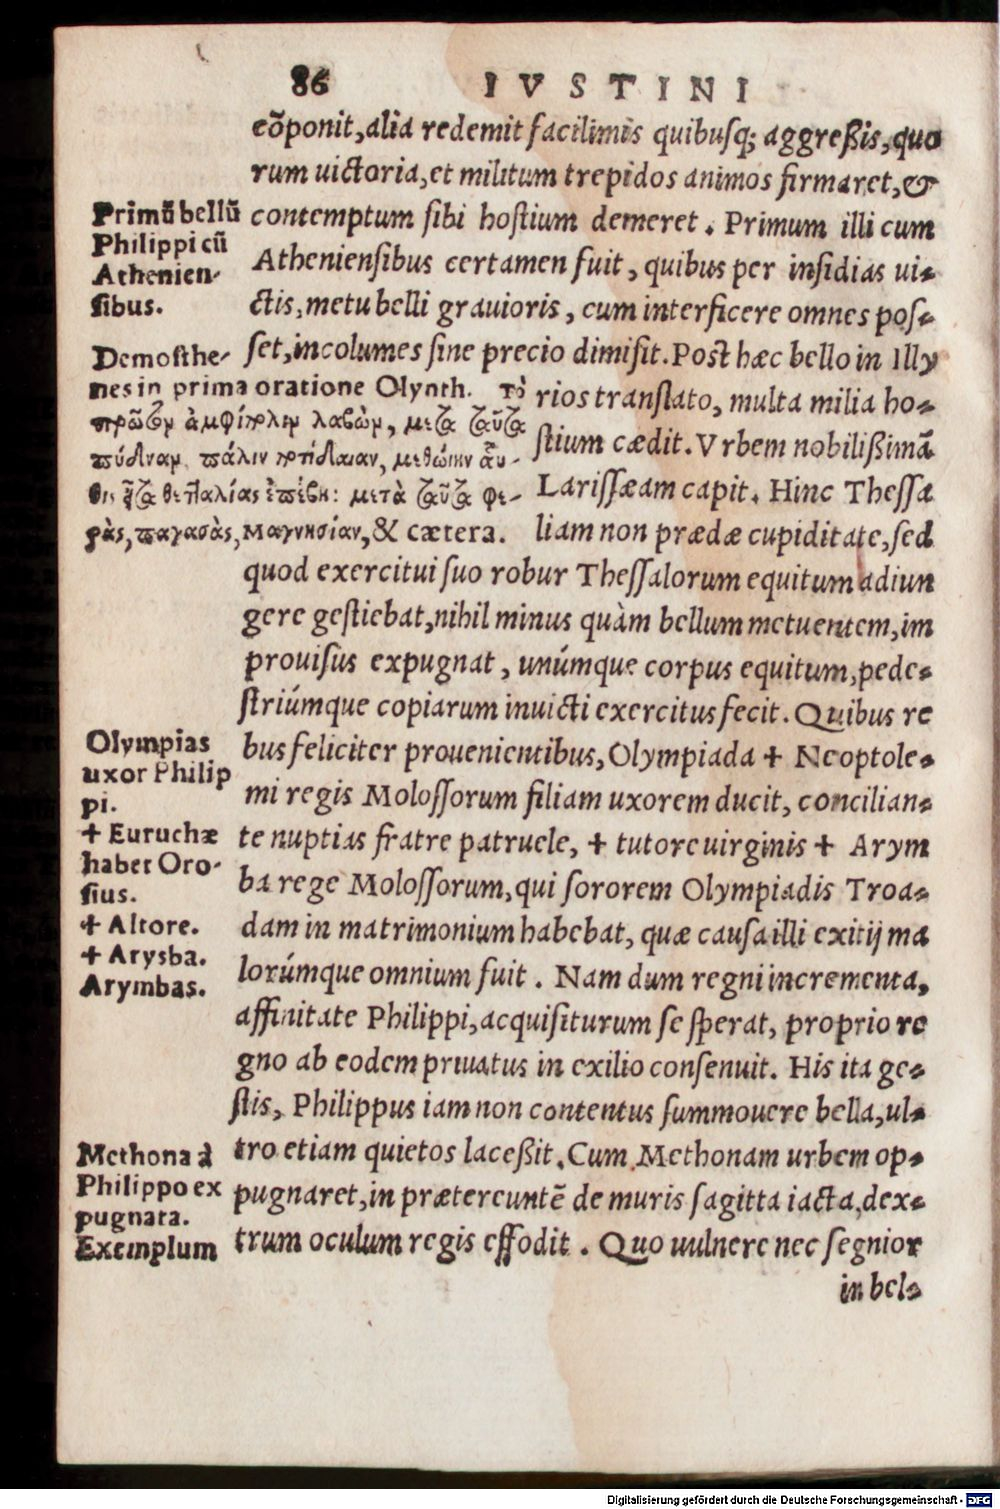 86 IVSTINI
cõponit, alia redemit facilimis quibusq; aggreßis, quo
rum uictoria, et militum trepidos animos firmaret, &
contemptum sibi hostium demeret. Primum illi cum
Atheniensibus certamen fuit, quibus per insidias ui-
ctis, metu belli grauioris, cum interficere omnes pos-
set, incolumes sine precio dimisit. Post hæc bello in Illy
rios translato, multa milia ho-
stium cædit. Vrbem nobilißimã
Larissæam capit. Hinc Thessa
liam non prædæ cupiditate, sed
quod exercitui suo robur Thessalorum equitum adiun
gere gestiebat, nihil minus quàm bellum metuentem, im
prouisus expugnat, unúmque corpus equitum, pede-
striúmque copiarum inuicti exercitus fecit. Quibus re
bus feliciter prouenientibus, Olympiada + Neoptole-
mi regis Molossorum filiam uxorem ducit, concilian-
te nuptias fratre patruele, + tutore uirginis + Arym
ba rege Molossorum, qui sororem Olympiadis Troa-
dam in matrimonium habebat, quæ causa illi exitij ma
lorúmque omnium fuit. Nam dum regni incrementa,
affinitate Philippi, acquisiturum se sperat, proprio re
gno ab eodem priuatus in exilio consenuit. His ita ge-
stis, Philippus iam non contentus summouere bella, ul-
tro etiam quietos laceßit. Cum Methonam urbem op-
pugnaret, in prætereuntẽ de muris sagitta iacta, dex-
trum oculum regis effodit. Quo uulnere nec segnior
in bel-
Primũ bellũ
Philippi cũ
Athenien-
sibus.
Demosthe-
nes in prima oratione Olynth. τὸ
πρῶτον ἀμφίπολιν λαβὼν, μετα ταῦτα
πύδναν πάλιν ποτίδαιαν, μεθώνην αὖ-
θις εἶτα θετταλίας ἐπέβη: μετὰ ταῦτα φε-
ρὰς, παγασὰς, μαγνησίαν, & cætera.
Olympias
uxor Philip
pi.
+ Euruchæ
habet Oro-
sius.
+ Altore.
+ Arysba.
Arymbas.
Methona à
Philippo ex
pugnata.
Exemplum
Digitalisierung gefördert durch die Deutsche Forschungsgemeinschaft - DFG